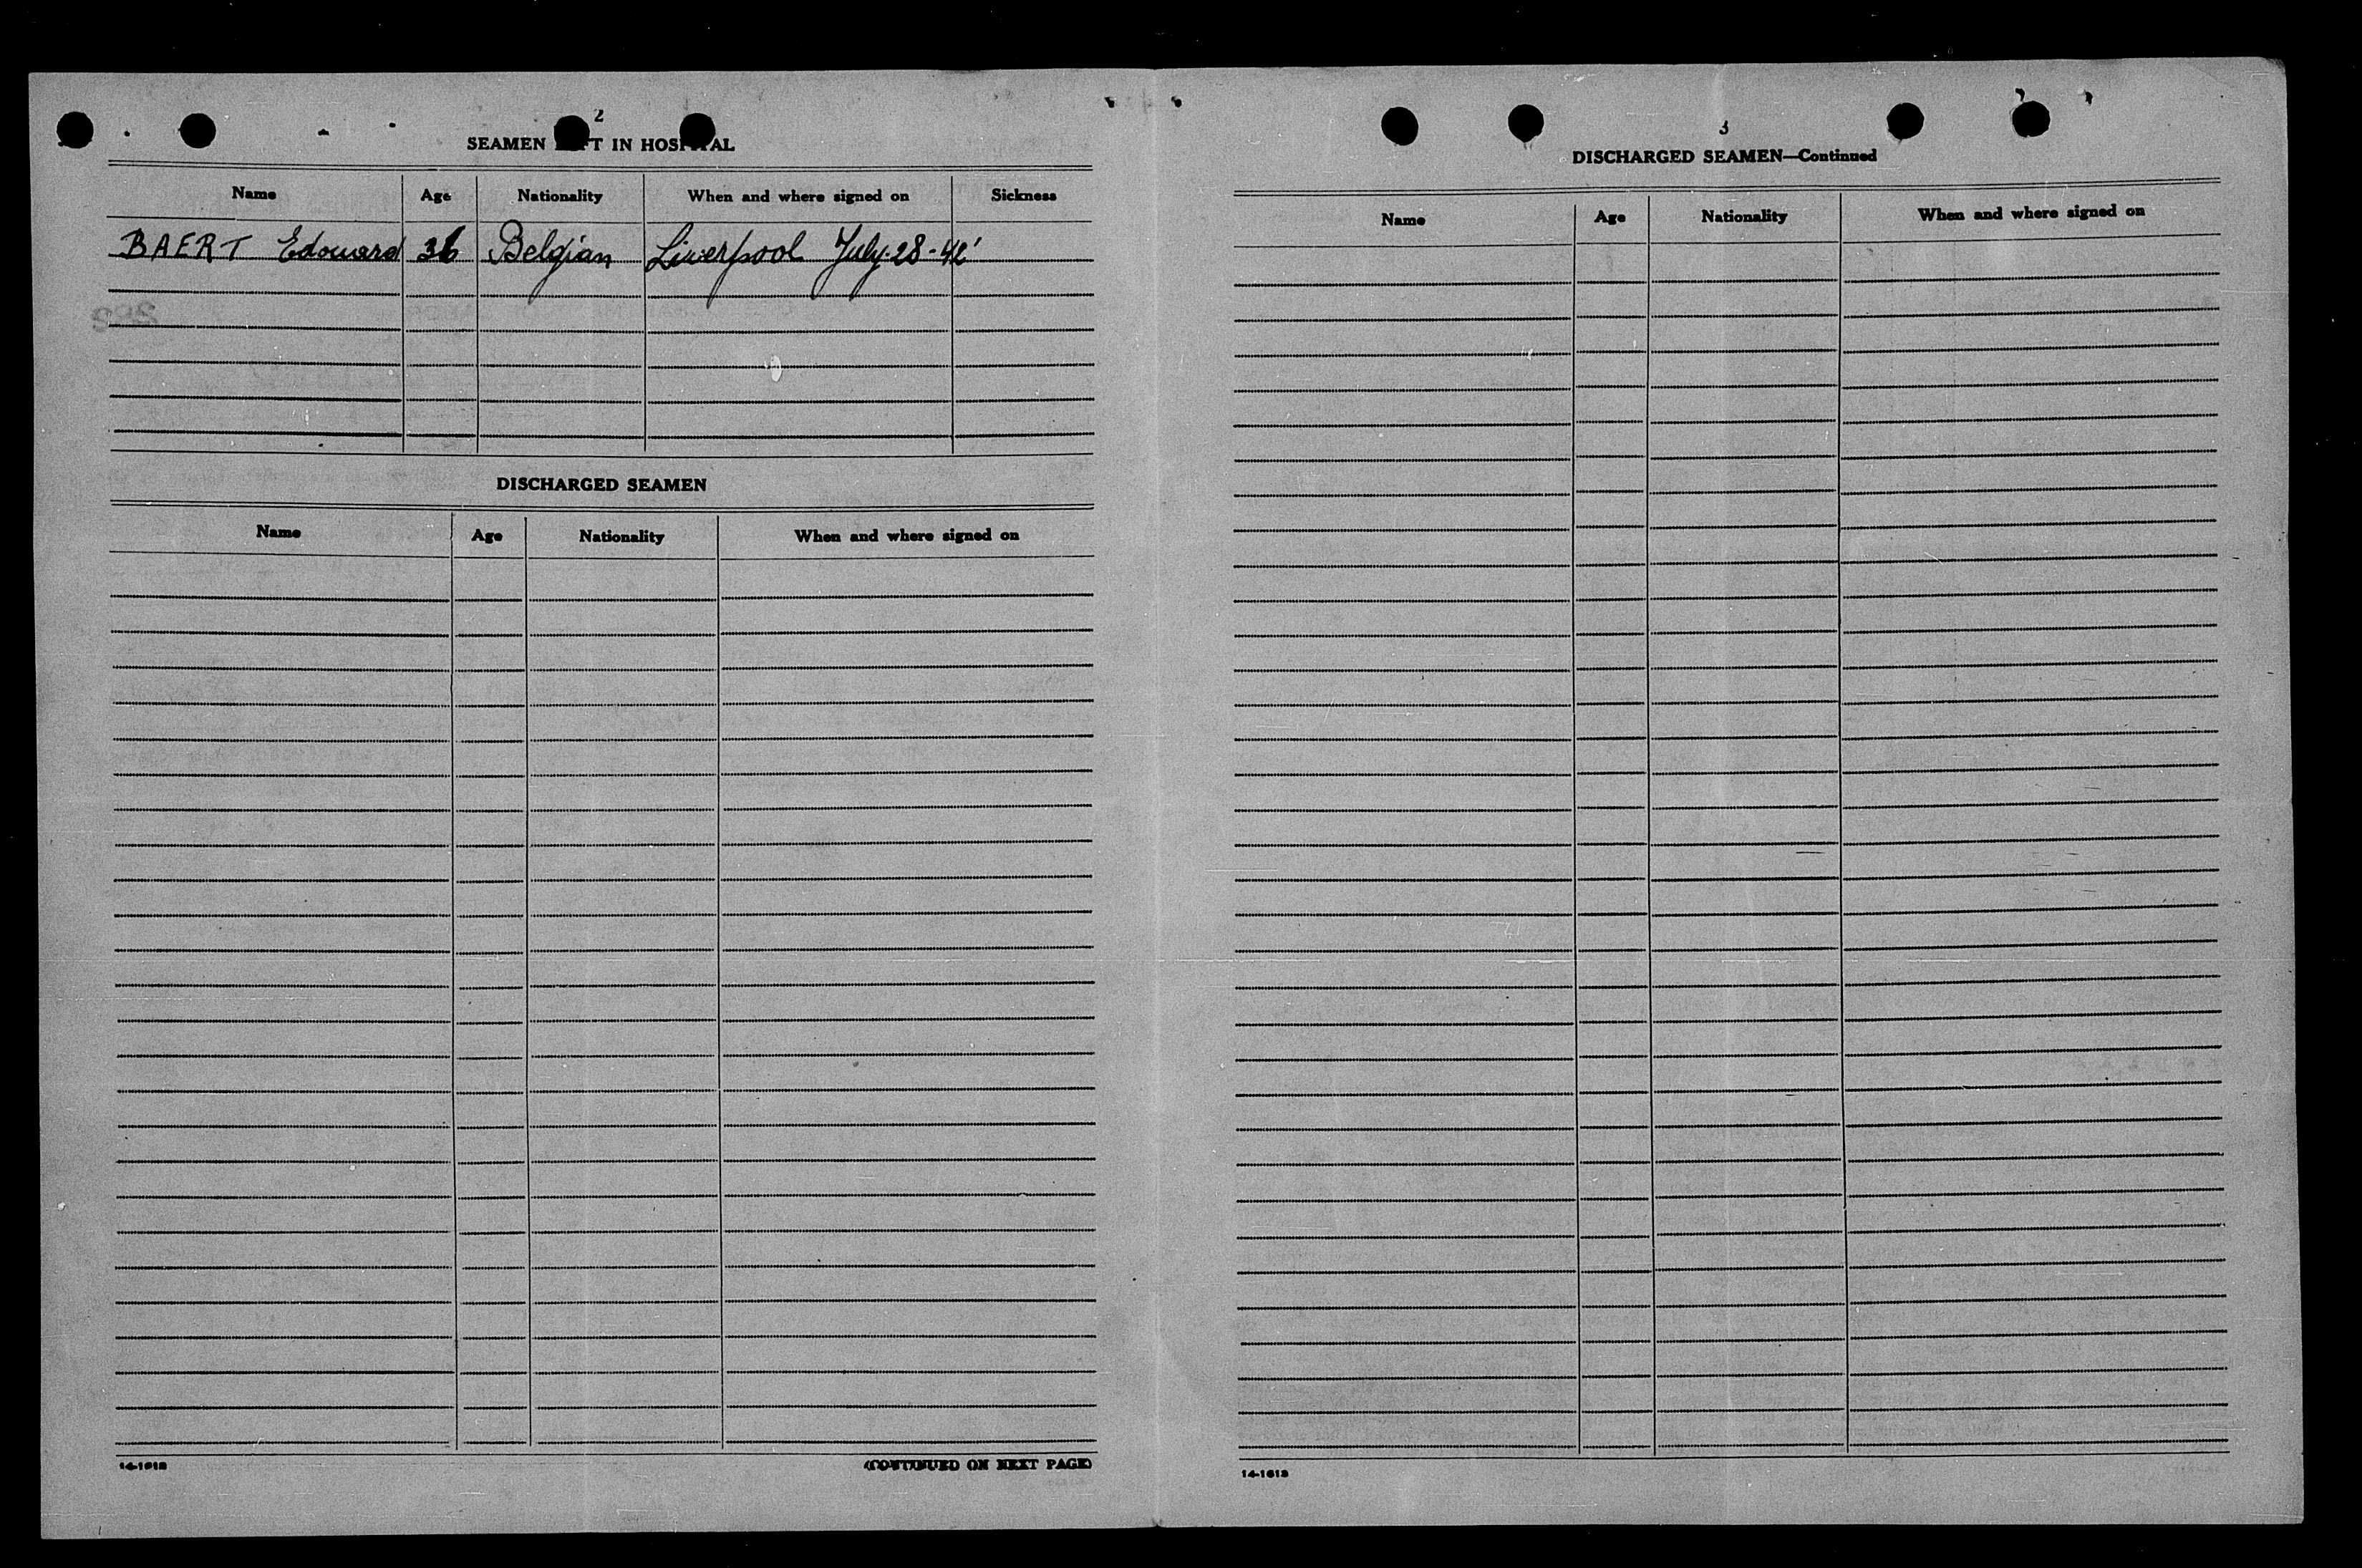 2
SEAMEN LEFT IN HOSPITAL
Name Age Nationality When and where signed on Sickness
BAERT Edouard 36 Belgian Liverpool July-28-42'
DISCHARGED SEAMEN
Name Age Nationality When and where signed on
14-1613
(CONTINUED ON NEXT PAGE)
3
DISCHARGED SEAMEN—Continued
Name Age Nationality When and where signed on
14-1613